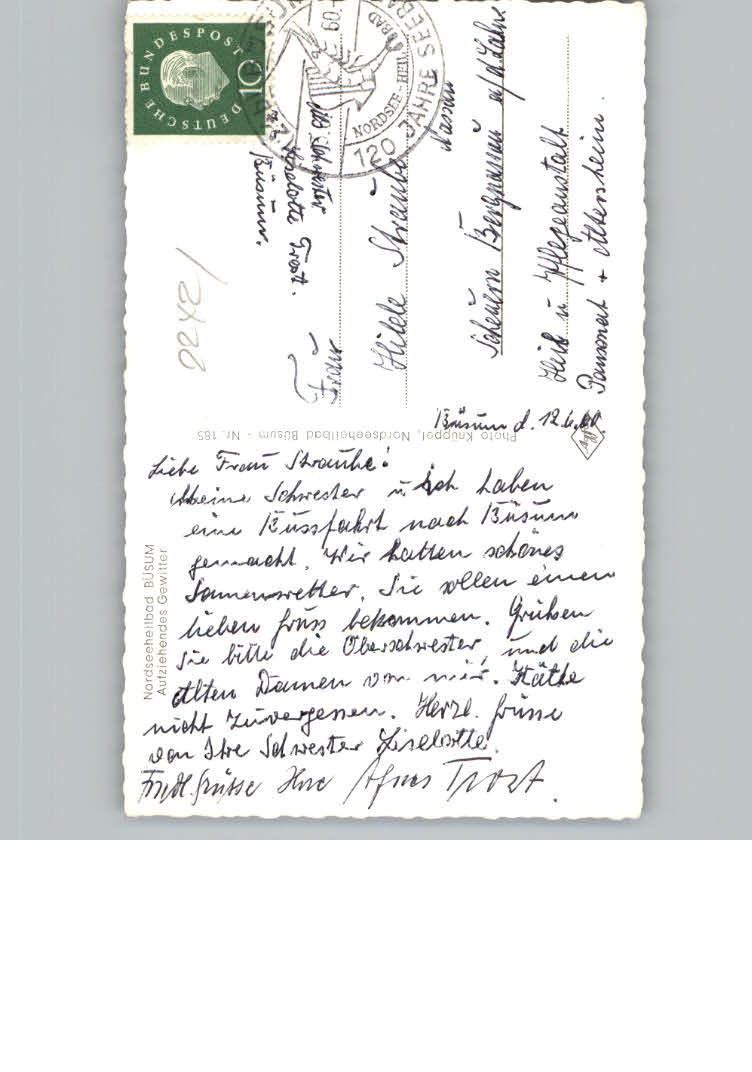 Büsum d. 12.6.60.
Liebe Frau Straube!
Meine Schwester u. ich haben
eine Bussfahrt nach Büsum
gemacht. Wir hatten schönes
Sonnenwetter. Sie sollen einen
lieben Gruss bekommen. Grüssen
Sie bitte die Oberschwester, und die
alten Damen von mir. Käthe
nicht zuvergessen. Herzl. Grüsse
von Ihre Schwester Liselotte.
Frdl. Grüsse Ihre Agnes Trost.
Nordseeheilbad BÜSUM
Aufziehendes Gewitter
Photo Knüppel, Nordseeheilbad Büsum - Nr. 185
Agfa
DEUTSCHE BUNDESPOST
10
120 JAHRE SEEBA
NORDSEE-HEILBAD
60.-
Schwester
Liselotte Trost.
Büsum.
22421
Frau
Hilde Straube
Nassau
Scheuern Bergnassau a/d Lahn
Heil u Pflegeanstalt
Pensionat + Altersheim.